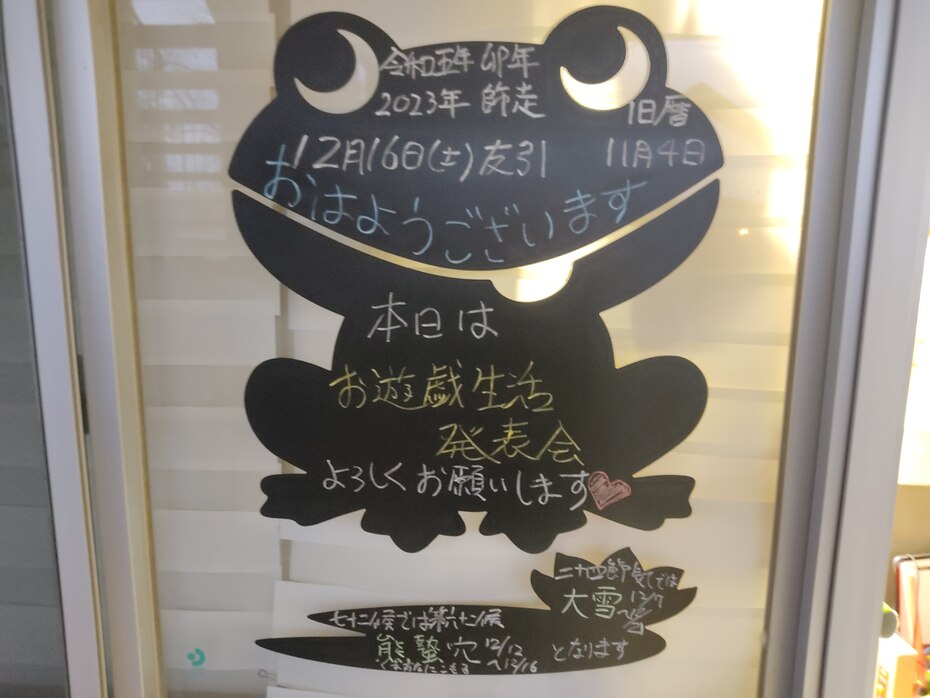 令和五年 卯年
2023年 師走
旧暦
12月16日(土)友引 11月4日
おはようございます
本日は
お遊戯生活
発表会
よろしくお願いします
二十四節気では
大雪 12/7
七十二候では第六十二候
熊蟄穴 12/12
~12/16
となります